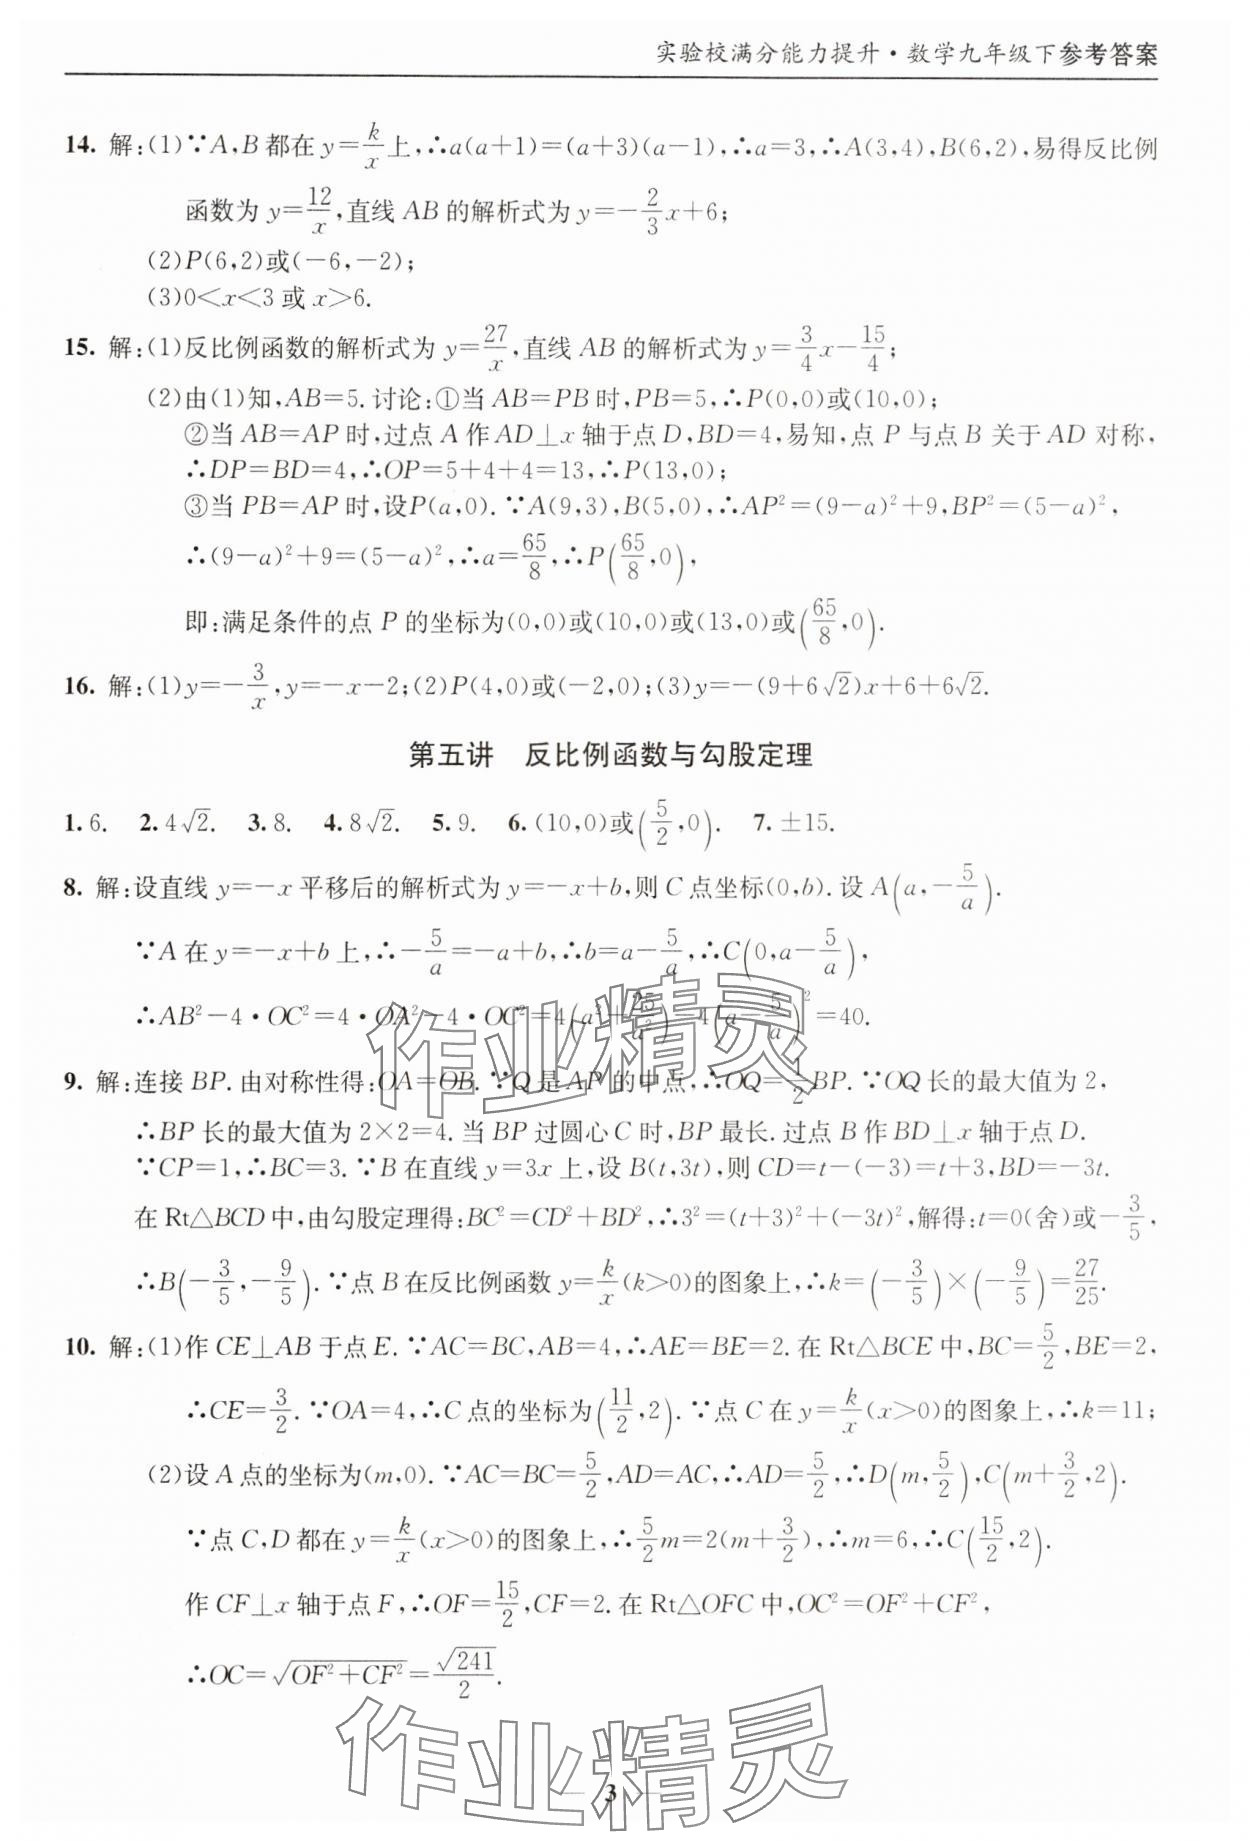 实验校满分能力提升·数学九年级下参考答案
14. 解:(1)∵A,B都在y=k/x上,∴a(a+1)=(a+3)(a−1),∴a=3,∴A(3,4),B(6,2),易得反比例
函数为y=12/x,直线AB的解析式为y=−2/3x+6;
(2)P(6,2)或(−6,−2);
(3)0<x<3或x>6.
15. 解:(1)反比例函数的解析式为y=27/x,直线AB的解析式为y=3/4x−15/4;
(2)由(1)知,AB=5.讨论:①当AB=PB时,PB=5,∴P(0,0)或(10,0);
②当AB=AP时,过点A作AD⊥x轴于点D,BD=4,易知,点P与点B关于AD对称,
∴DP=BD=4,∴OP=5+4+4=13,∴P(13,0);
③当PB=AP时,设P(a,0).∵A(9,3),B(5,0),∴AP²=(9−a)²+9,BP²=(5−a)²,
∴(9−a)²+9=(5−a)²,∴a=65/8,∴P(65/8,0),
即:满足条件的点P的坐标为(0,0)或(10,0)或(13,0)或(65/8,0).
16. 解:(1)y=−3/x,y=−x−2;(2)P(4,0)或(−2,0);(3)y=−(9+6√2)x+6+6√2.
第五讲 反比例函数与勾股定理
1. 6. 2. 4√2. 3. 8. 4. 8√2. 5. 9. 6. (10,0)或(5/2,0). 7. ±15.
8. 解:设直线y=−x平移后的解析式为y=−x+b,则C点坐标(0,b).设A(a,−5/a).
∵A在y=−x+b上,∴−5/a=−a+b,∴b=a−5/a,∴C(0,a−5/a),
∴AB²−4·OC²=4·OA²−4·OC²=4(a²+25/a²)−4(a−5/a)²=40.
9. 解:连接BP.由对称性得:OA=OB.∵Q是AP的中点,∴OQ=1/2BP.∵OQ长的最大值为2,
∴BP长的最大值为2×2=4.当BP过圆心C时,BP最长.过点B作BD⊥x轴于点D.
∵CP=1,∴BC=3.∵B在直线y=3x上,设B(t,3t),则CD=t−(−3)=t+3,BD=−3t.
在Rt△BCD中,由勾股定理得:BC²=CD²+BD²,∴3²=(t+3)²+(−3t)²,解得:t=0(舍)或−3/5,
∴B(−3/5,−9/5).∵点B在反比例函数y=k/x(k>0)的图象上,∴k=(−3/5)×(−9/5)=27/25.
10. 解:(1)作CE⊥AB于点E.∵AC=BC,AB=4,∴AE=BE=2.在Rt△BCE中,BC=5/2,BE=2,
∴CE=3/2.∵OA=4,∴C点的坐标为(11/2,2).∵点C在y=k/x(x>0)的图象上,∴k=11;
(2)设A点的坐标为(m,0).∵AC=BC=5/2,AD=AC,∴AD=5/2,∴D(m,5/2),C(m+3/2,2).
∵点C,D都在y=k/x(x>0)的图象上,∴5/2m=2(m+3/2),∴m=6,∴C(15/2,2).
作CF⊥x轴于点F,∴OF=15/2,CF=2.在Rt△OFC中,OC²=OF²+CF²,
∴OC=√(OF²+CF²)=√241/2.
作业精灵
作业精灵
3